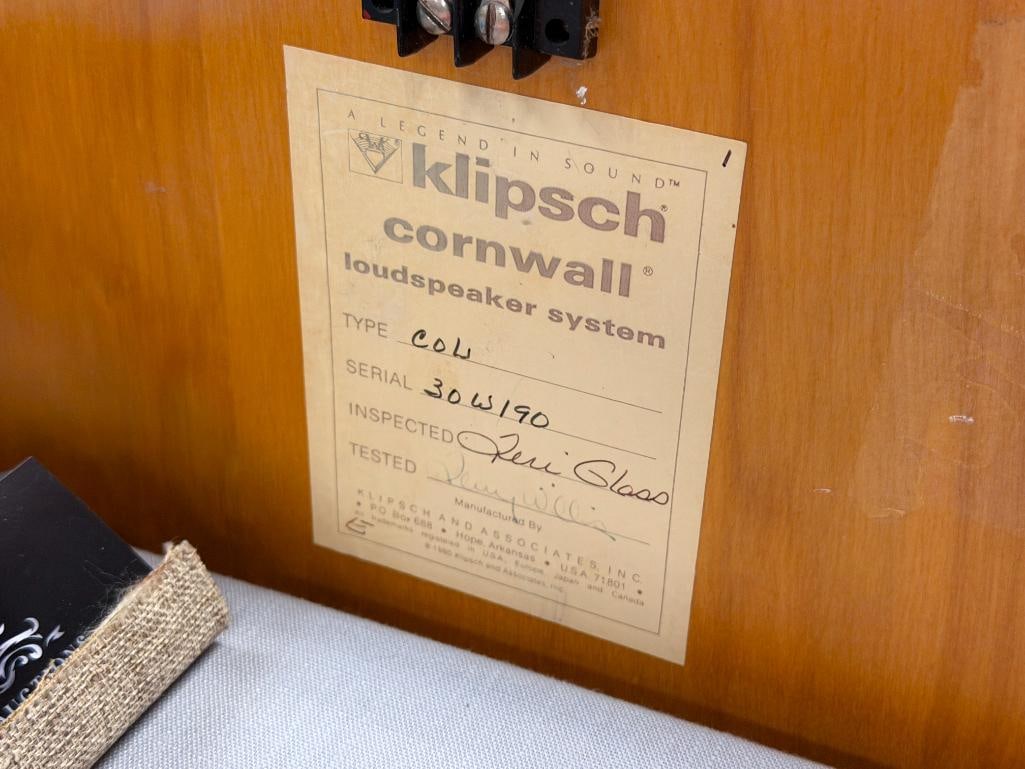 A LEGEND IN SOUND™
klipsch®
cornwall®
loudspeaker system
TYPE COL
SERIAL 30W190
INSPECTED Teri Glass
TESTED Willis
Manufactured By
KLIPSCH AND ASSOCIATES, INC.
• PO Box 688 • Hope, Arkansas • USA 71801 •
All trademarks registered in USA, Europe, Japan and Canada
© 1980 Klipsch and Associates, Inc.
E